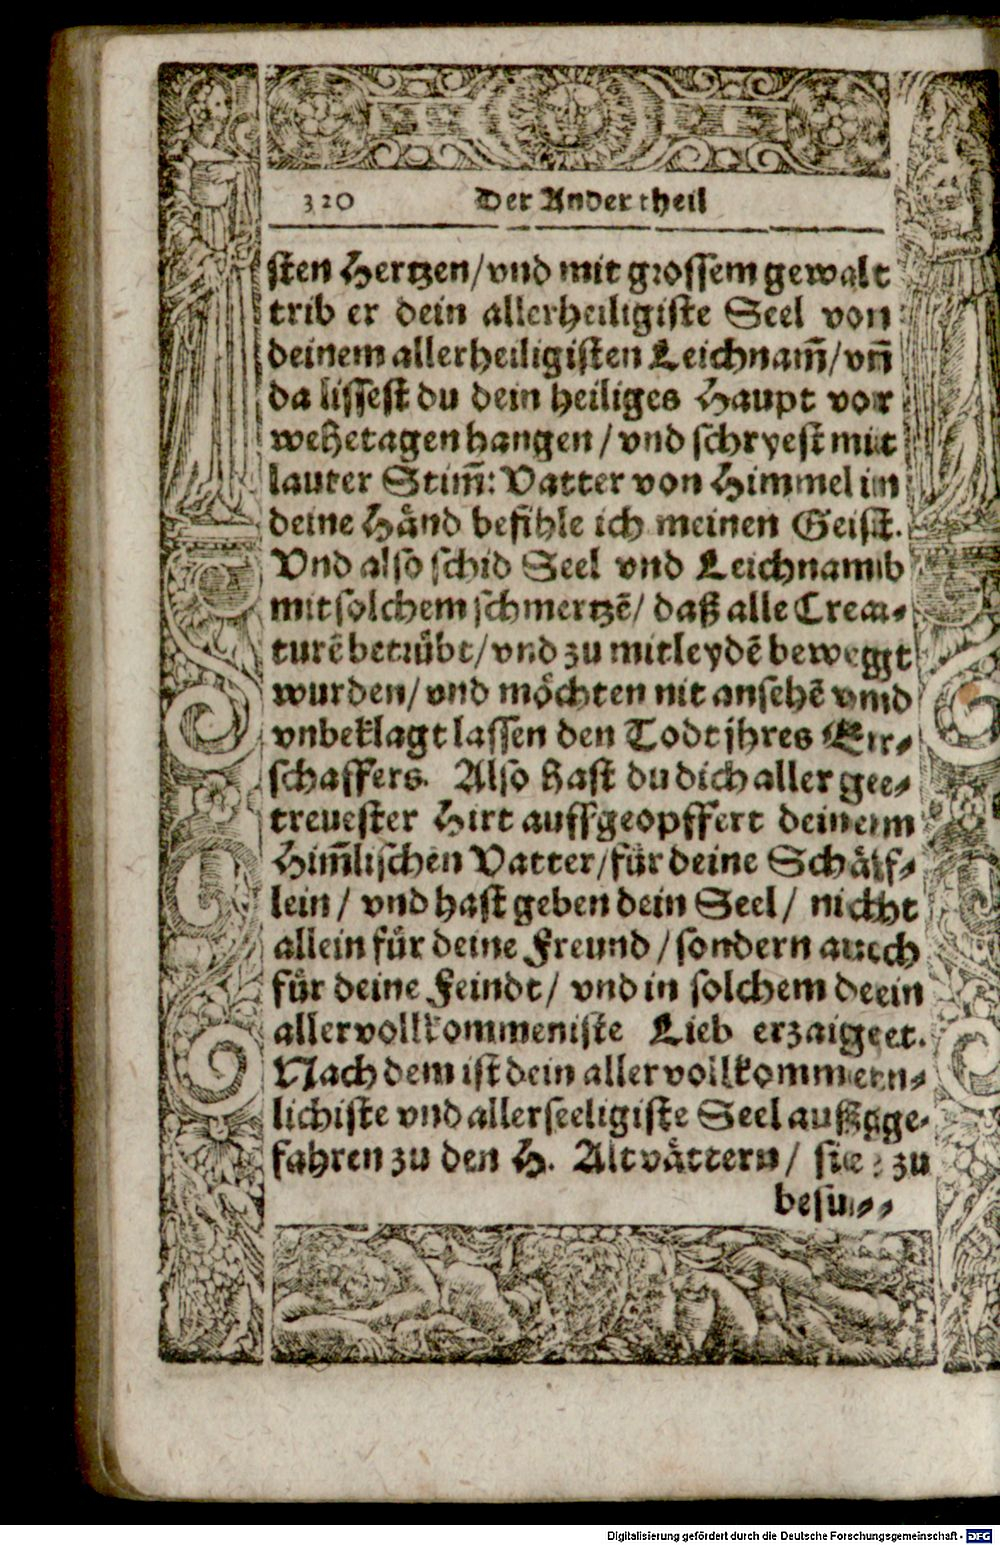 320 Der Ander theil
sten Hertzen/vnd mit grossem gewalt
trib er dein allerheiligiste Seel von
deinem allerheiligisten Leichnam̃/vñ
da lissest du dein heiliges Haupt vor
wehetagen hangen/vnd schryest mit
lauter Stim̃: Vatter von Himmel in
deine Hånd befihle ich meinen Geist.
Vnd also schid Seel vnd Leichnamb
mit solchem schmertzẽ/ daß alle Crea-
turẽ betrůbt/vnd zu mitleydẽ bewegt
wurden/vnd mo̊chten nit ansehẽ vnd
vnbeklagt lassen den Todt jhres Er-
schaffers. Also hast du dich aller ge-
treuester Hirt auffgeopffert deinem
Him̃lischen Vatter/fůr deine Schåf-
lein/ vnd hast geben dein Seel/ nicht
allein fůr deine Freund/sondern auch
fůr deine Feindt/ vnd in solchem dein
allervollkommeniste Lieb erzaiget.
Nach dem ist dein allervollkommen-
lichiste vnd allerseeligiste Seel außge-
fahren zu den H. Altvåttern/ sie zu
besu-
Digitalisierung gefördert durch die Deutsche Forschungsgemeinschaft - DFG